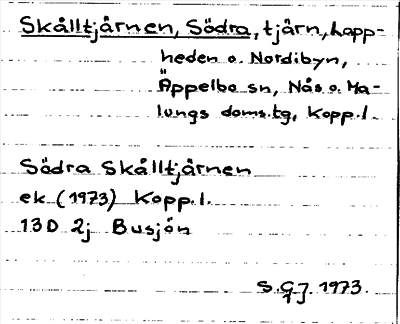 Skålltjärnen, Södra, tjärn, hopp-
heden o. Nordibyn,
Äppelbo sn, Nås o. Ma-
lungs doms.tg, Kopp.l.
Södra Skålltjärnen
ek (1973) Kopp.l.
13D 2j Busjön
S.GJ. 1973.